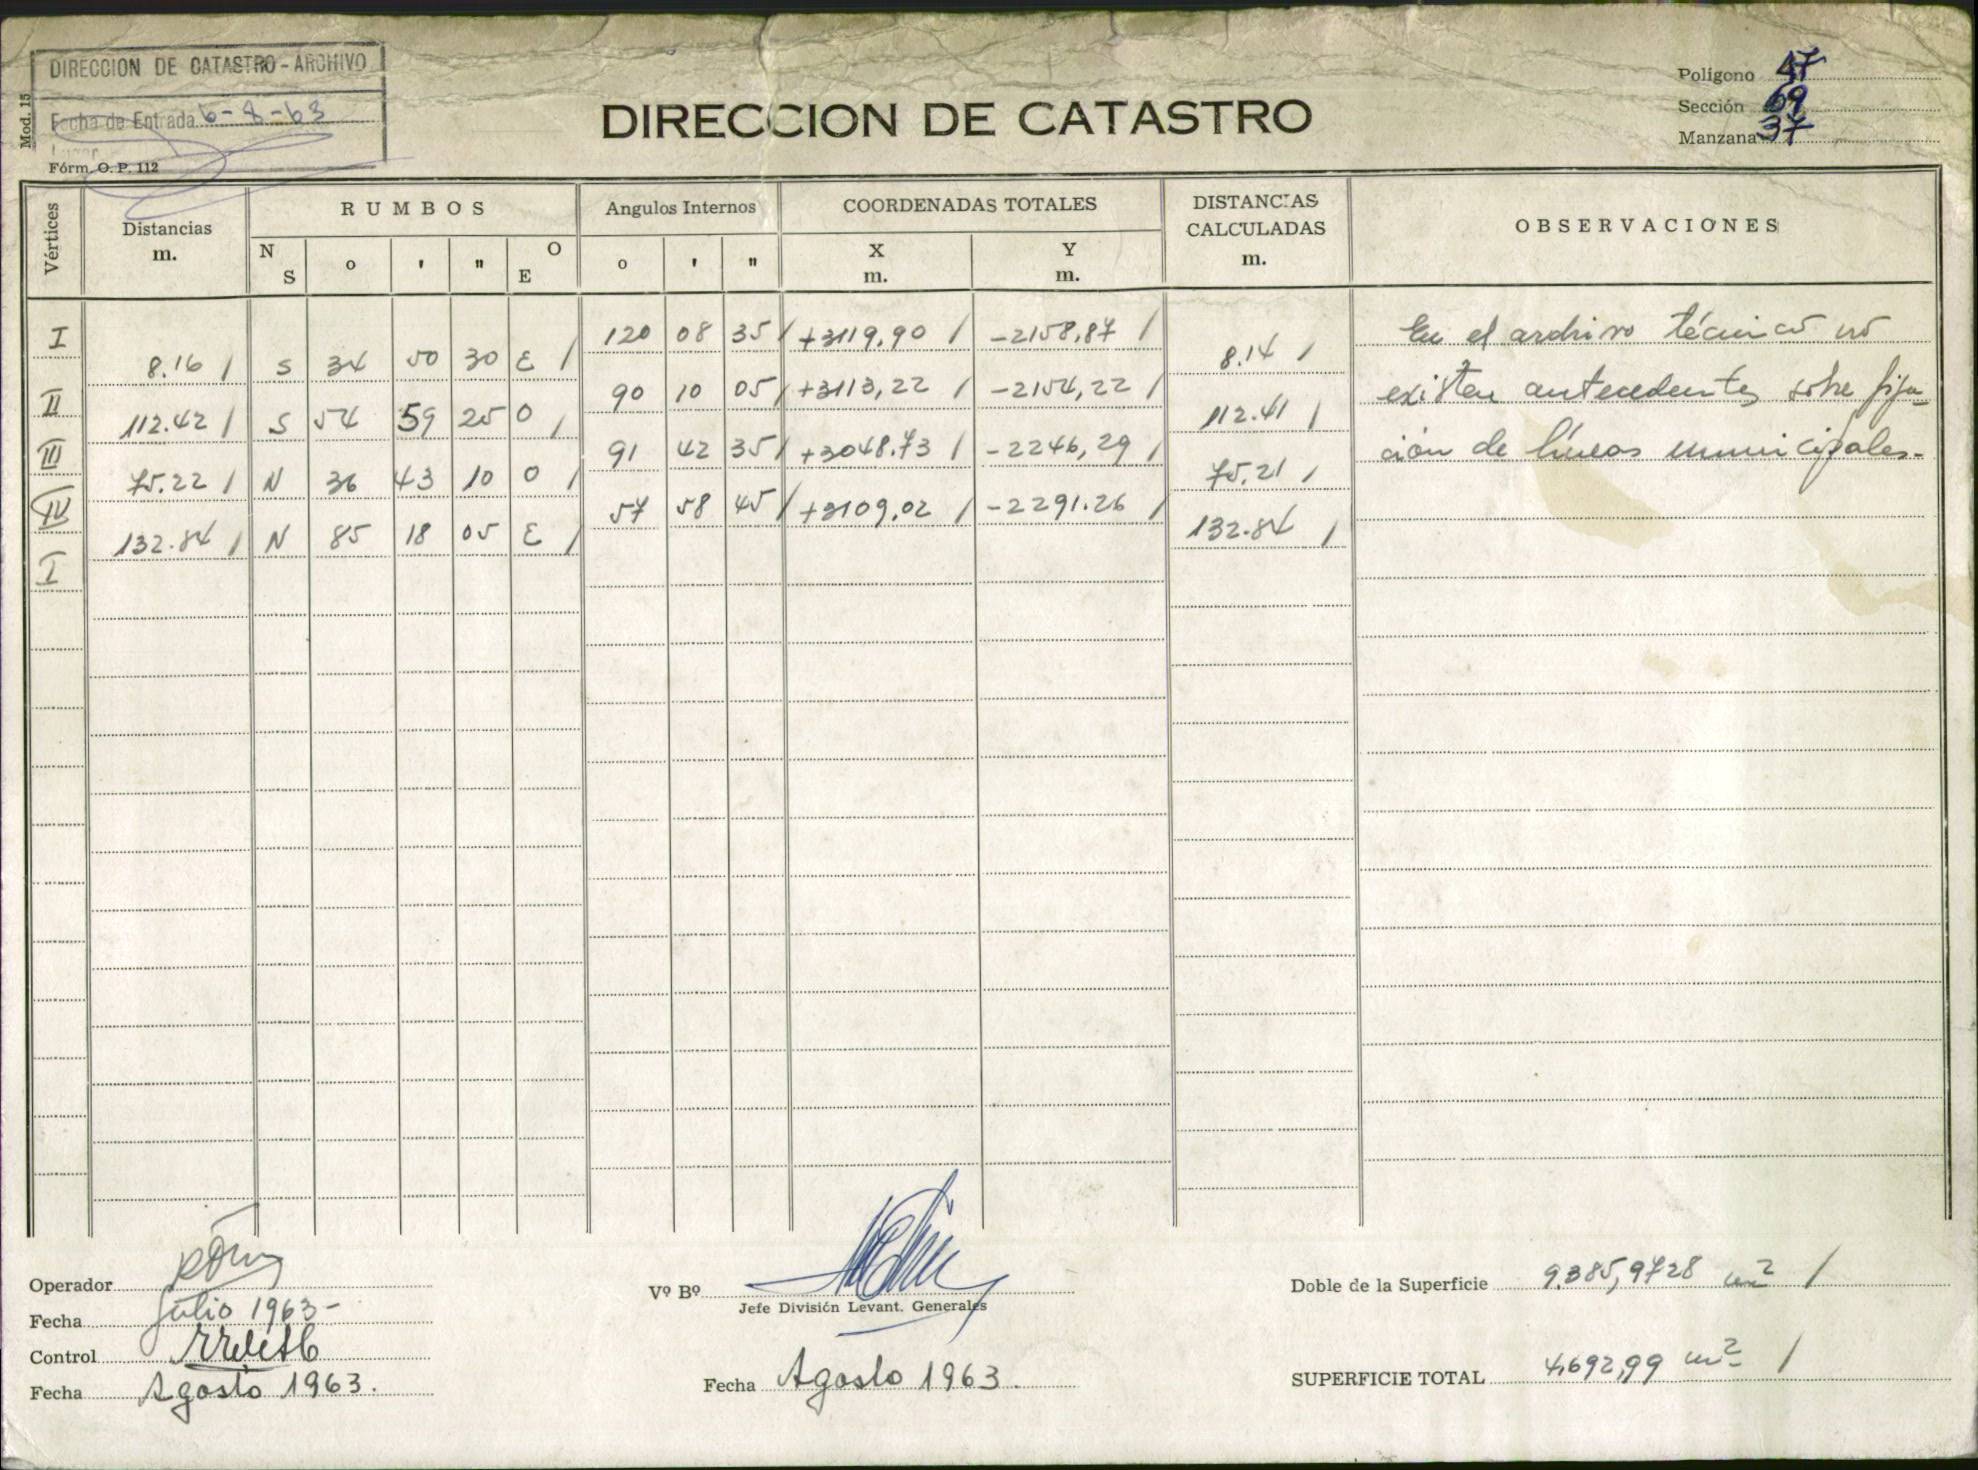 DIRECCION DE CATASTRO - ARCHIVO
Fecha de Entrada 6-8-63
Mod. 15
Fórm. O. P. 112
DIRECCION DE CATASTRO
Polígono 47
Sección 69
Manzana 37
Vértices
Distancias
m.
RUMBOS
N S ° ' " O E
Angulos Internos
° ' "
COORDENADAS TOTALES
X
m.
Y
m.
DISTANCIAS
CALCULADAS
m.
OBSERVACIONES
I 120 08 35 / +3119,90 / -2158,87 /
8.16 / S 34 50 30 E / 8.14 /
II 90 10 05 / +3113,22 / -2154,22 /
112.42 / S 54 59 25 O / 112.41 /
III 91 42 35 / +3048.73 / -2246,29 /
75.22 / N 36 43 10 O / 75.21 /
IV 57 58 45 / +3109,02 / -2291.26 /
132.84 / N 85 18 05 E / 132.84 /
I
En el archivo técnico nó
existen antecedentes sobre fija-
ción de líneas municipales.-
Operador
Fecha Julio 1963-
Control
Fecha Agosto 1963.
Vº Bº
Jefe División Levant. Generales
Fecha Agosto 1963.
Doble de la Superficie 9.385,9728 m² /
SUPERFICIE TOTAL 4,692,99 m² /